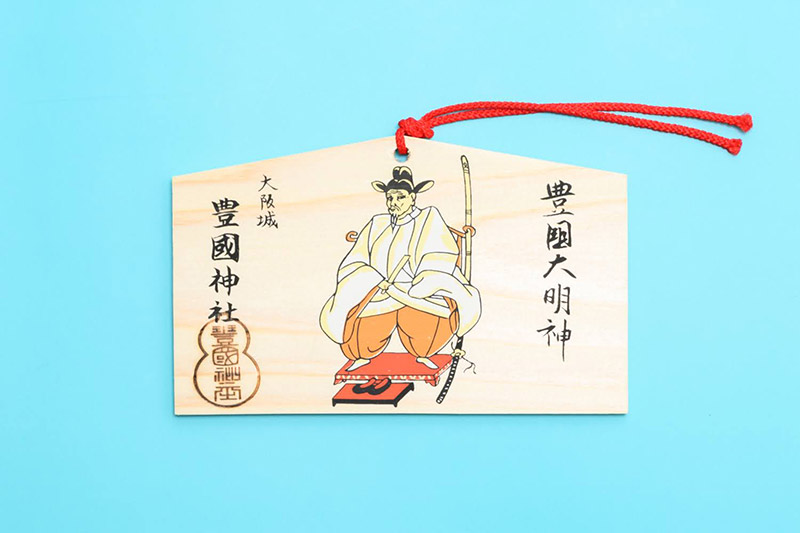 豊国大明神
大阪城
豊國神社
豊國神社